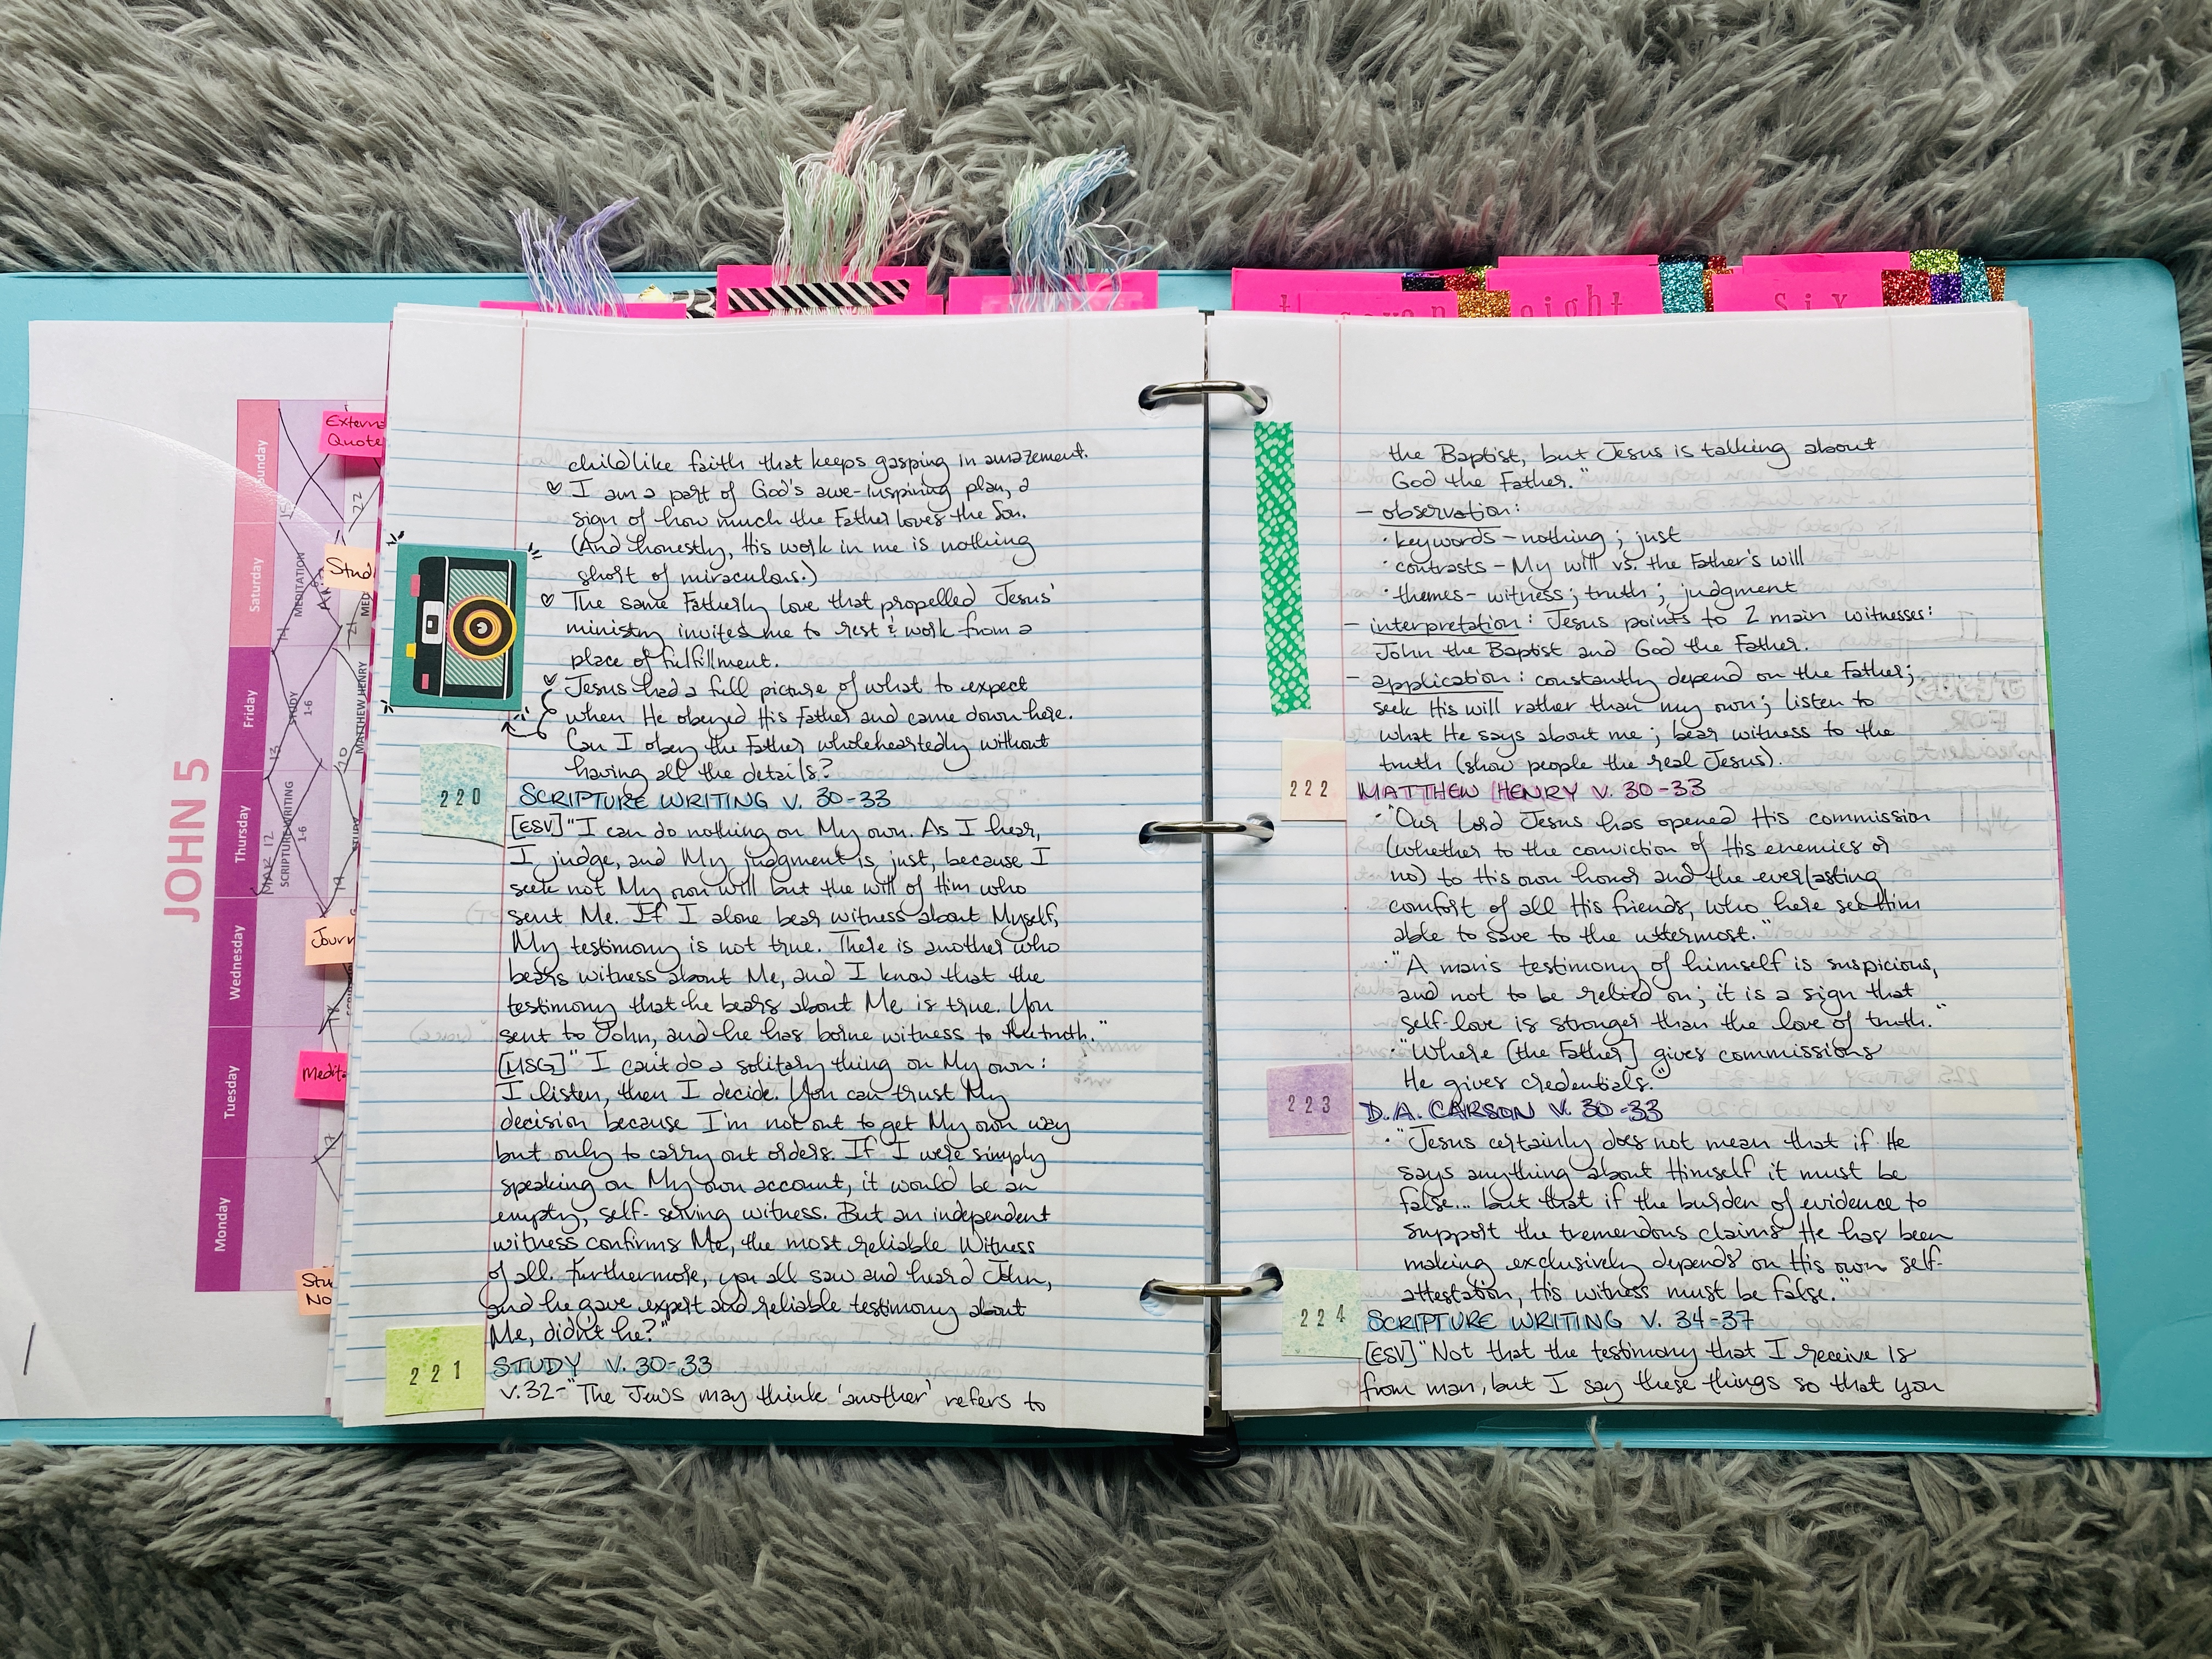 JOHN 5
Sunday
Saturday
Friday
Thursday
Wednesday
Tuesday
Monday
Quote
Stud
Journ
Medita
Stu
No
MEDITATION
STUDY
1-6
MATTHEW HENRY
SCRIPTURE WRITING
1-6
eight
six
childlike faith that keeps gasping in amazement.
♡ I am a part of God's awe-inspiring plan, a
sign of how much the Father loves the Son.
(And honestly, His work in me is nothing
short of miraculous.)
♡ The same Fatherly love that propelled Jesus'
ministry invites me to rest & work from a
place of fulfillment.
♡ Jesus had a full picture of what to expect
when He obeyed His Father and came down here.
Can I obey the Father wholeheartedly without
having all the details?
220 SCRIPTURE WRITING V. 30-33
[ESV] "I can do nothing on My own. As I hear,
I judge, and My judgment is just, because I
seek not My own will but the will of Him who
sent Me. If I alone bear witness about Myself,
My testimony is not true. There is another who
bears witness about Me, and I know that the
testimony that he bears about Me is true. You
sent to John, and he has borne witness to the truth."
[MSG] "I can't do a solitary thing on My own:
I listen, then I decide. You can trust My
decision because I'm not out to get My own way
but only to carry out orders. If I were simply
speaking on My own account, it would be an
empty, self-serving witness. But an independent
witness confirms Me, the most reliable Witness
of all. Furthermore, you all saw and heard John,
and he gave expert and reliable testimony about
Me, didn't he?"
221 STUDY V. 30-33
v.32-"The Jews may think 'another' refers to
the Baptist, but Jesus is talking about
God the Father."
- observation:
· keywords - nothing; just
· contrasts - My will vs. the Father's will
· themes - witness; truth; judgment
- interpretation: Jesus points to 2 main witnesses:
John the Baptist and God the Father.
- application: constantly depend on the Father;
seek His will rather than my own; listen to
what He says about me; bear witness to the
truth (show people the real Jesus).
222 MATTHEW HENRY V. 30-33
· "Our Lord Jesus has opened His commission
(whether to the conviction of His enemies or
no) to His own honor and the everlasting
comfort of all His friends, who here see Him
able to save to the uttermost."
· "A man's testimony of himself is suspicious,
and not to be relied on; it is a sign that
self-love is stronger than the love of truth."
· "Where [the Father] gives commissions
He gives credentials."
223 D.A. CARSON V. 30-33
· "Jesus certainly does not mean that if He
says anything about Himself it must be
false... but that if the burden of evidence to
support the tremendous claims He has been
making exclusively depends on His own self-
attestation, His witness must be false."
224 SCRIPTURE WRITING V. 34-37
[ESV] "Not that the testimony that I receive is
from man, but I say these things so that you